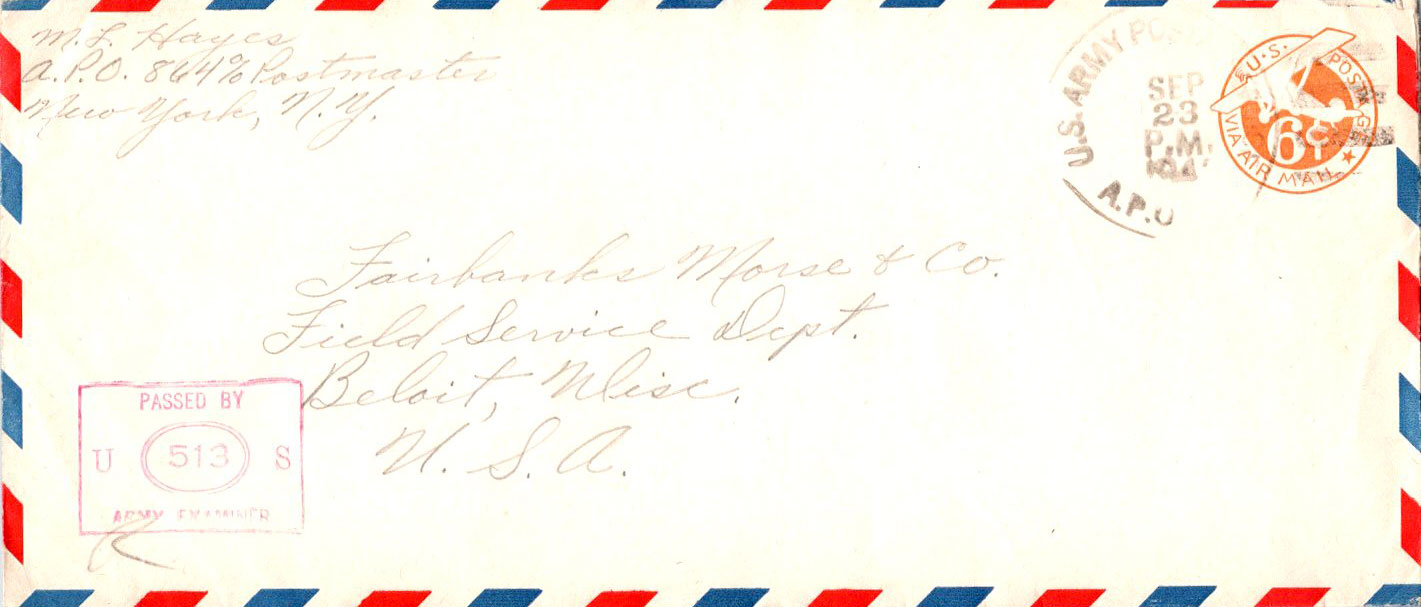 M. L. Hayes
A.P.O. 864 % Postmaster
New York, N.Y.
U.S. ARMY
SEP
23
P.M.
A.P.O
U.S. POSTAGE
6¢
VIA AIR MAIL
Fairbanks Morse & Co.
Field Service Dept.
Beloit, Wisc.
U. S. A.
PASSED BY
U 513 S
ARMY EXAMINER